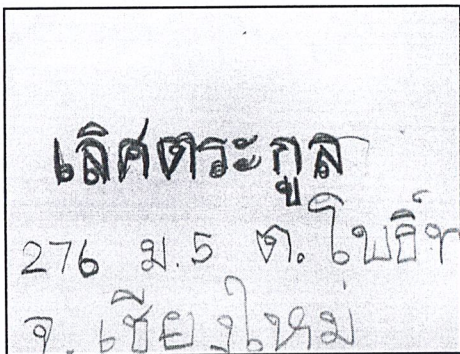 เลิศตระกูล
276 ม.5 ต.
จ. เชียงใหม่